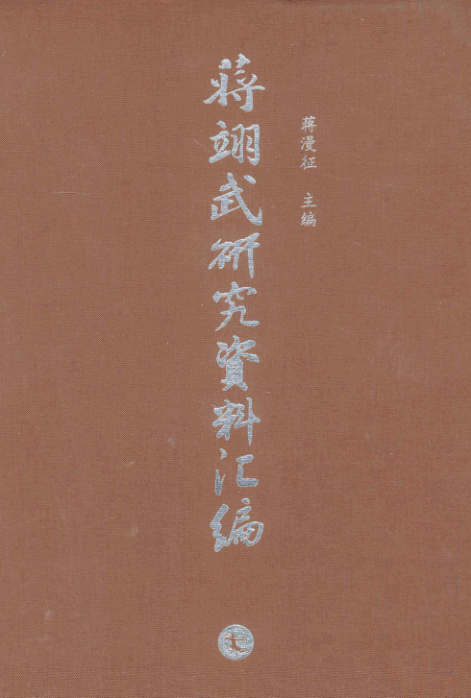 蒋漫征 主编
蔣翊武研究資料汇编
七